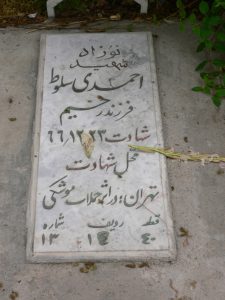 نوزاد
شهید
احمدی سلوط
فرزند رحیم
شهادت ۶۶/۱۲/۲۳
محل شهادت
تهران: در اثر حملات موشکی
قطعه ردیف شماره
۴۰ ۱۴ ۱۳